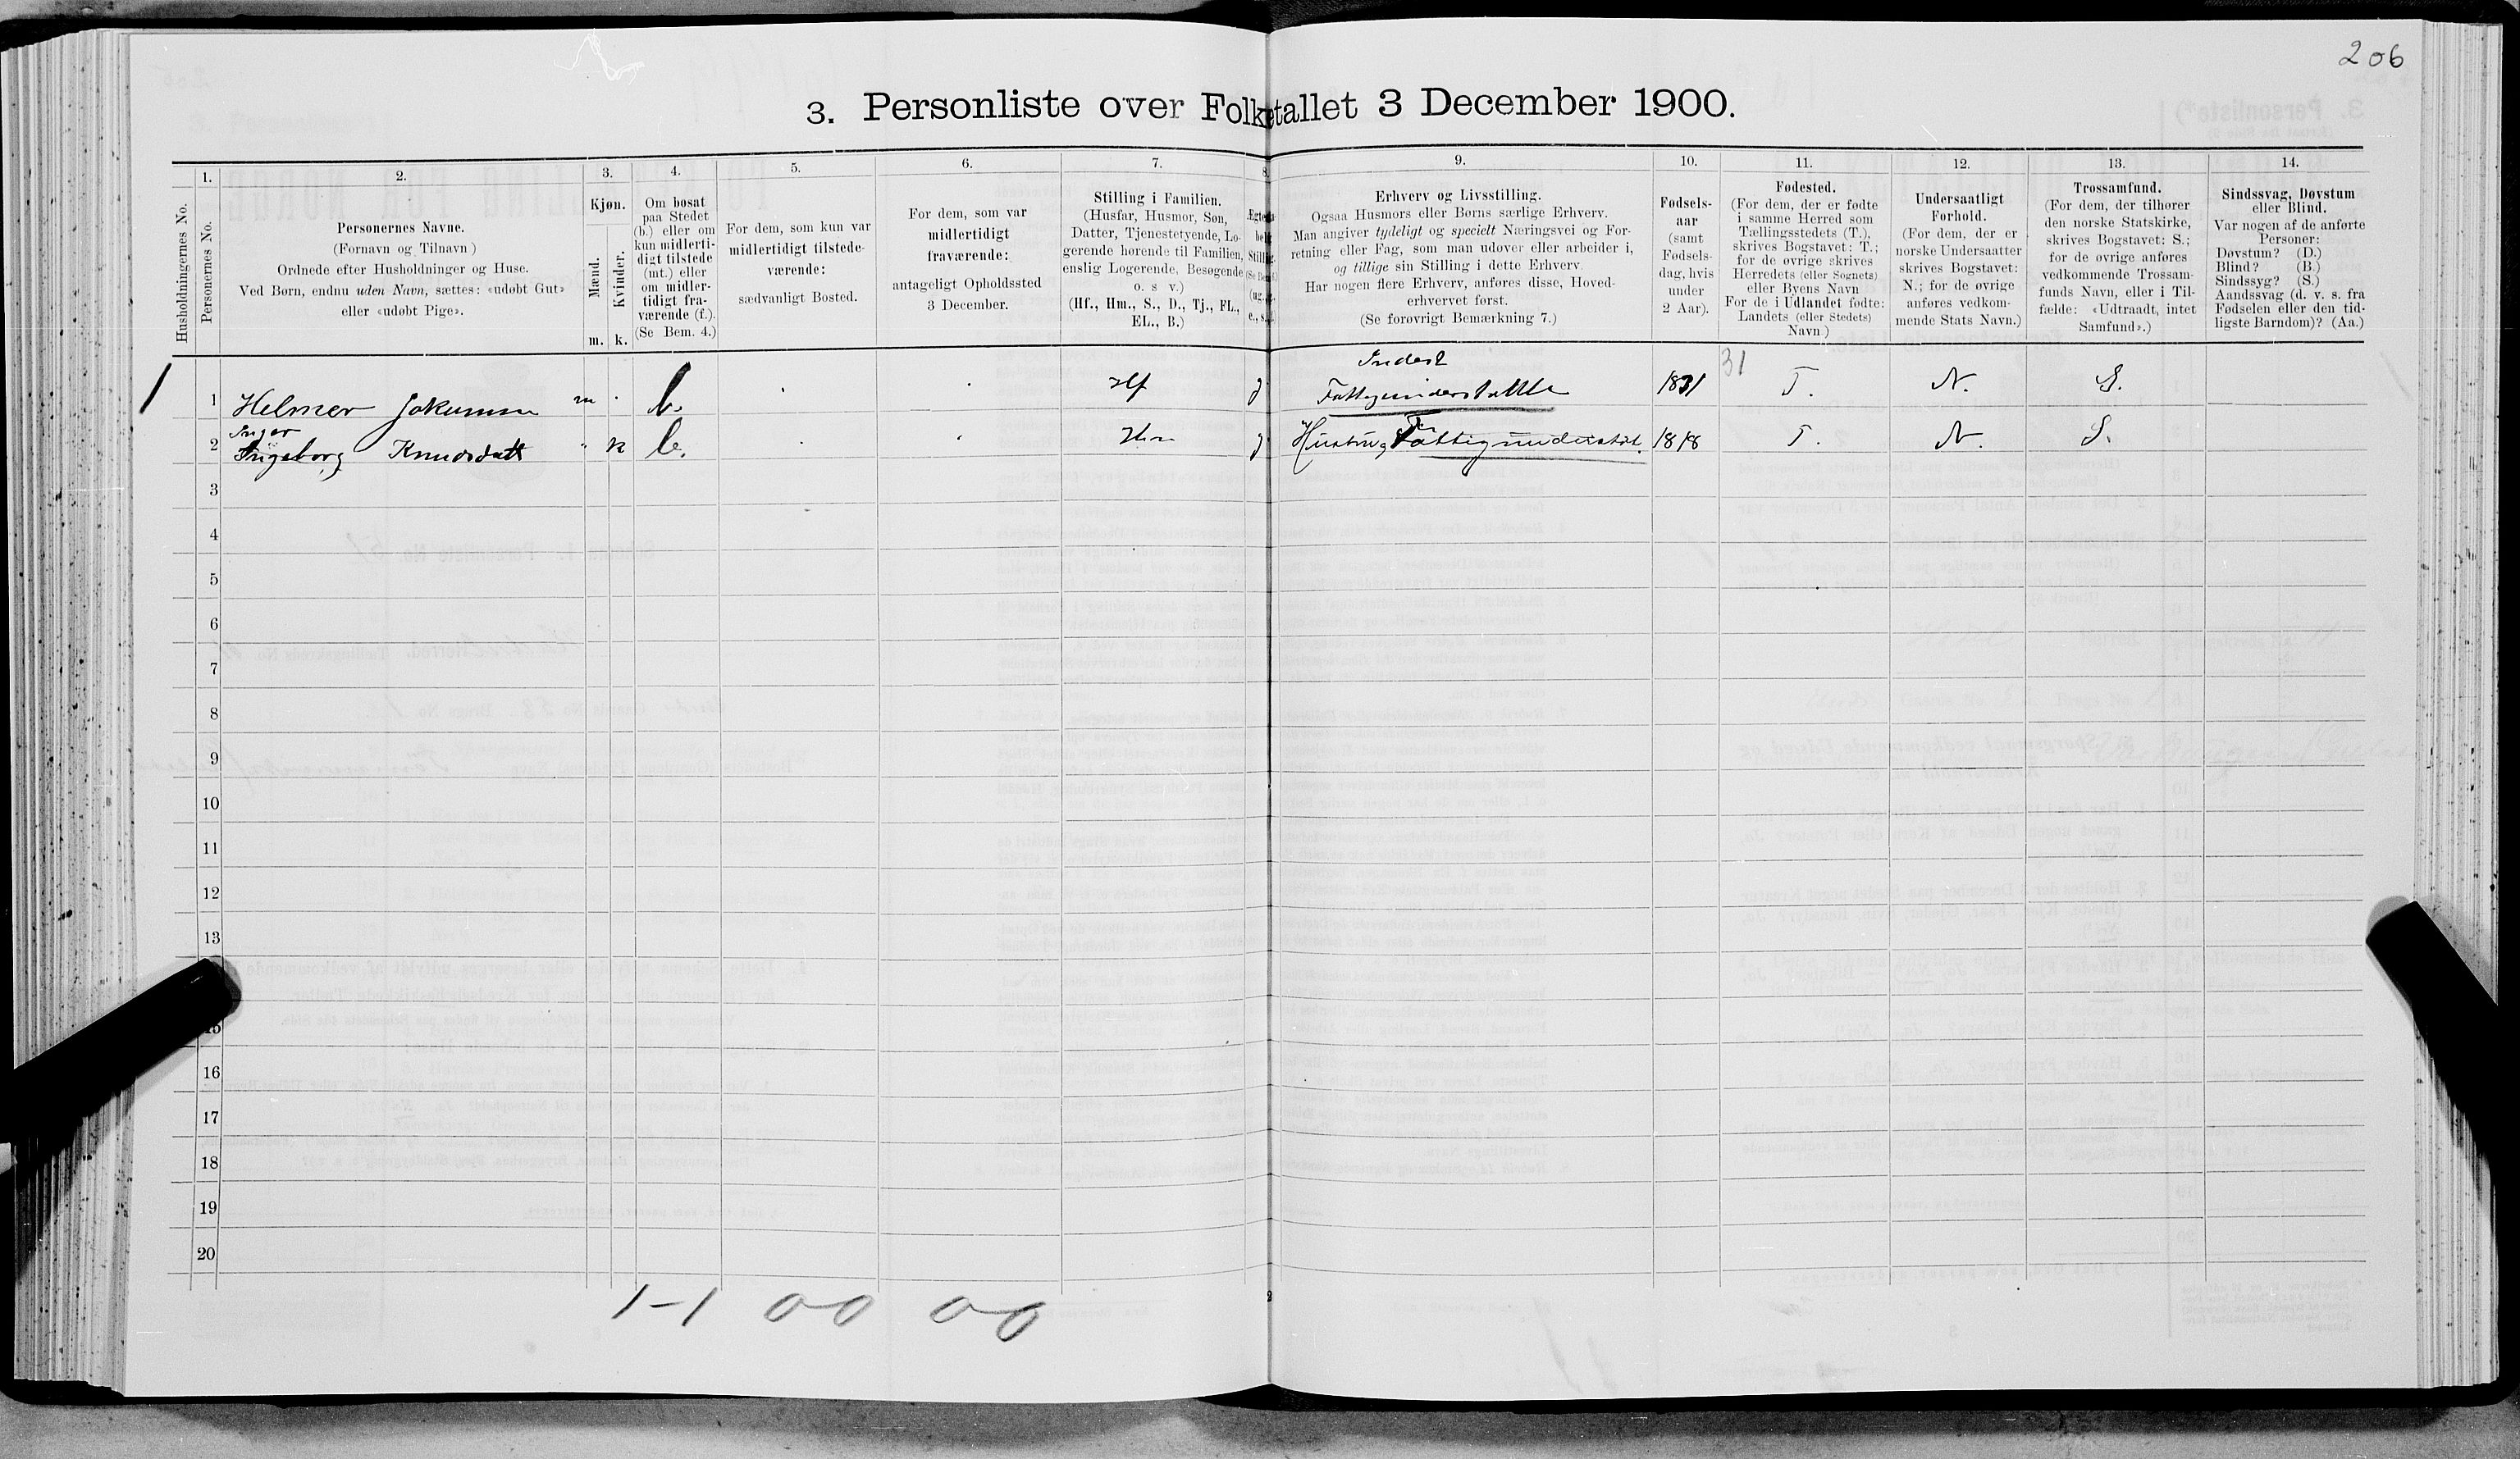 206
3. Personliste over Folketallet 3 December 1900.
Husholdningernes No.
1.
Personernes No.
2.
Personernes Navne.
(Fornavn og Tilnavn)
Ordnede efter Husholdninger og Huse.
Ved Børn, endnu uden Navn, sættes: «udøbt Gut»
eller «udøbt Pige».
3.
Kjøn.
Mænd.
Kvinder.
m. k.
4.
Om bosat
paa Stedet
(b.) eller om
kun midlerti-
digt tilstede
(mt.) eller
om midler-
tidigt fra-
værende (f.).
(Se Bem. 4.)
5.
For dem, som kun var
midlertidigt tilstede-
værende:
sædvanligt Bosted.
6.
For dem, som var
midlertidigt
fraværende:
antageligt Opholdssted
3 December.
7.
Stilling i Familien.
(Husfar, Husmor, Søn,
Datter, Tjenestetyende, Lo-
gerende hørende til Familien,
enslig Logerende, Besøgende
o. s v.)
(Hf., Hm., S., D., Tj., FL.,
EL., B.)
8.
9.
Erhverv og Livsstilling.
Ogsaa Husmors eller Børns særlige Erhverv.
Man angiver tydeligt og specielt Næringsvei og For-
retning eller Fag, som man udøver eller arbeider i,
og tillige sin Stilling i dette Erhverv
Har nogen flere Erhverv, anføres disse, Hoved-
erhvervet først.
(Se forøvrigt Bemærkning 7.)
10.
Fødsels-
aar
(samt
Fødsels-
dag, hvis
under
2 Aar).
11.
Fødested.
(For dem, der er fødte
i samme Herred som
Tællingsstedets (T.),
skrives Bogstavet: T.;
for de øvrige skrives
Herredets (eller Sognets)
eller Byens Navn
For de i Udlandet fødte:
Landets (eller Stedets)
Navn)
12.
Undersaatligt
Forhold.
(For dem, der er
norske Undersaatter
skrives Bogstavet:
N.; for de øvrige
anføres vedkom-
mende Stats Navn.)
13.
Trossamfund.
(For dem, der tilhører
den norske Statskirke,
skrives Bogstavet: S.;
for de øvrige anføres
vedkommende Trossam-
funds Navn, eller i Til-
fælde: «Udtraadt, intet
Samfund».)
14.
Sindssvag, Døvstum
eller Blind.
Var nogen af de anførte
Personer:
Døvstum? (D.)
Blind? (B.)
Sindssyg? (S.)
Aandssvag (d. v. s. fra
Fødselen eller den tid-
ligste Barndom)? (Aa.)
Inderst 31
1 1 Helmer Jokumsen m b. Hf g Fattigunderstøttet 1831 T. N. S.
Inger
2 Ingeborg Knudsdatt k b. Hm g Hustru, Fattigunderstøt. T. N. S.
3
4
5
6
7
8
9
10
11
12
13
15
16
17
18
19
20
1-1 00 00